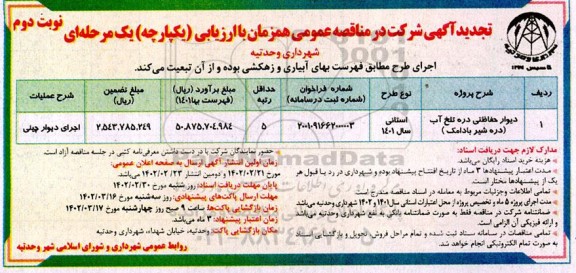 نوبت دوم
تجدید آگهی شرکت در مناقصه عمومی همزمان با ارزیابی (یکپارچه) یک مرحله‌ای
شهرداری وحدتیه
تاسیس ۱۳۴۴
اجرای طرح مطابق فهرست بهای آبیاری و زهکشی بوده و از آن تبعیت می‌کند.
ردیف | شرح پروژه | نوع طرح | شماره فراخوان (شماره ثبت درسامانه) | حداقل رتبه | مبلغ برآورد (ریال) (فهرست بها۱۴۰۱) | مبلغ تضمین (ریال) | شرح عملیات
۱ | دیوار حفاظتی دره تلخ آب (دره شیر بادامک) | استانی سال ۱۴۰۱ | ۲۰۰۱۰۹۱۶۶۲۰۰۰۰۰۳ | ۵ | ۵۰.۸۷۵.۷۰۴.۹۸۴ | ۲.۵۴۳.۷۸۵.۲۴۹ | اجرای دیوار چینی
مدارک لازم جهت دریافت اسناد:
هزینه خرید اسناد رایگان می‌باشد.
مدت اعتبار پیشنهادها ۳ ماه از تاریخ افتتاح پیشنهاد بوده و شهرداری در رد یا قبول هر یک از پیشنهادها مختار است.
تمامی اطلاعات وجزئیات مربوط به معامله در اسناد مناقصه مندرج است.
مدت اجرای پروژه ۵ ماه و تخصیص پروژه از محل اعتبارات استانی سال۱۴۰۱ و ۱۴۰۲ شهرداری وحدتیه می‌باشد
ضمانتنامه شرکت در مناقصه فقط به صورت ضمانتنامه بانکی به نفع شهرداری وحدتیه می‌باشد و ارائه فیزیکی آن الزامی است
تمامی مناقصات در سامانه ستاد ثبت شده و تمام مراحل فروش، تحویل و بازگشایی اسناد به صورت تمام الکترونیکی انجام خواهد شد.
حضور نمایندگان شرکت با در دست داشتن معرفی‌نامه کتبی در جلسه مناقصه آزاد است.
زمان اولین انتشار آگهی ارسال به صفحه اعلان عمومی:
مورخ ۱۴۰۲/۰۲/۲۱ و دومین انتشار ۱۴۰۲/۰۲/۲۳ می‌باشد.
پایان مهلت دریافت اسناد: روز شنبه مورخ ۱۴۰۲/۰۲/۳۰
مهلت ارسال پاکت‌های پیشنهادی: روز سه‌شنبه مورخ ۱۴۰۲/۰۳/۱۶
زمان بازگشایی پاکت‌ها: ساعت ۹ صبح روز چهارشنبه مورخ ۱۴۰۲/۰۳/۱۷
زمان اعتبار پیشنهاد: ۳ ماه می باشد
مکان بازگشایی پاکت: وحدتیه، خیابان شهداء، شهرداری وحدتیه
روابط عمومی شهرداری و شورای اسلامی شهر وحدتیه